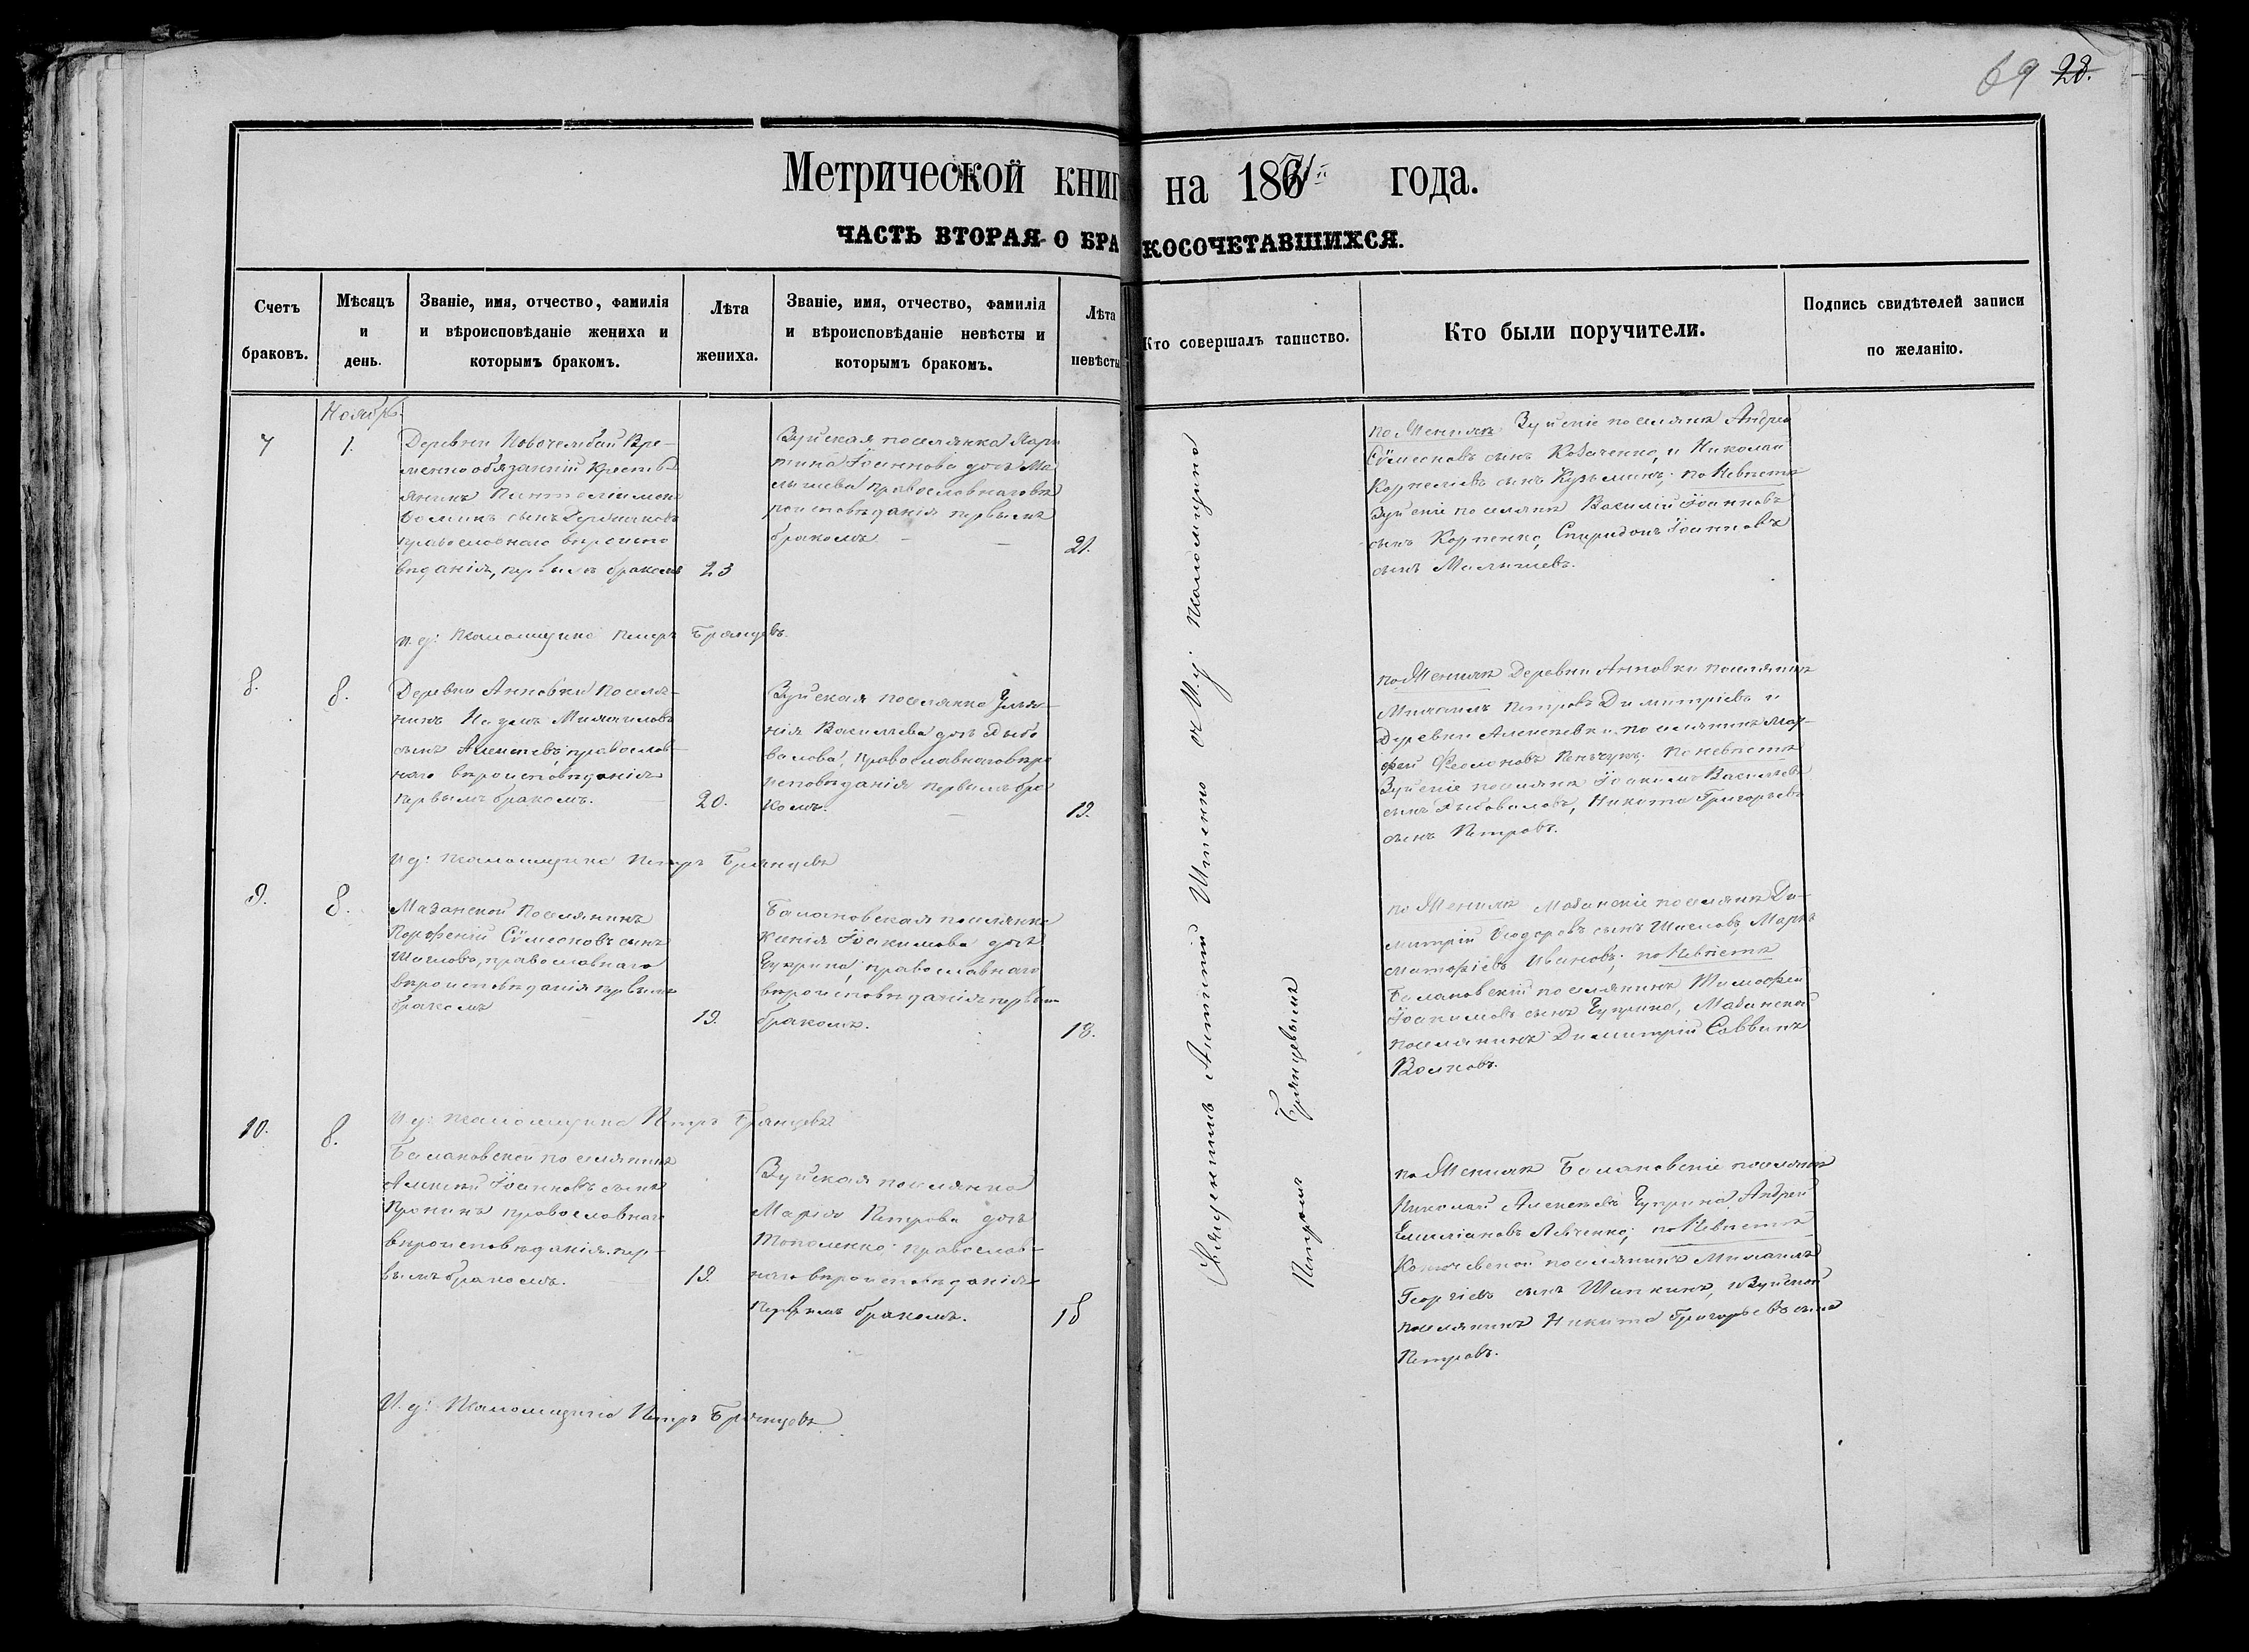 69 28.
Метрической книг на 1871 года.
ЧАСТЬ ВТОРАЯ О БРАКОСОЧЕТАВШИХСЯ.
Счетъ браковъ.
Мѣсяцъ и день.
Званіе, имя, отчество, фамилія и вѣроисповѣданіе жениха и которымъ бракомъ.
Лѣта жениха.
Званіе, имя, отчество, фамилія и вѣроисповѣданіе невѣсты и которымъ бракомъ.
Лѣта невѣсты
Кто совершалъ таинство.
Кто были поручители.
Подпись свидѣтелей записи по желанію.
Ноябрь.
7
1.
Деревни Вре-
менно обязанный Кресть-
янинъ
сынъ
православнаго вѣроиспо
вѣданія, первымъ бракомъ
23
Зуйская поселянка
Іоаннова дочь Ма
лышева православнаго вѣ
роисповѣданія первымъ
бракомъ
21.
по Женихѣ Зуйскіе поселяне Андрей
Сѵмеоновъ сынъ Коваченко, и Николай
Корнеліевъ сынъ Кузьминъ; по Невѣстѣ
Зуйскіе поселяне Василій Іоанновъ
сынъ Корпенко, Спиридонъ Іоанновъ
сынъ Малышевъ.
И. д: Псаломщика Петръ Брянцевъ.
8.
8.
Деревни Анновки поселя-
нинъ Наумъ Михаиловъ
сынъ Алексѣевъ, православ-
наго вѣроисповѣданія
первымъ бракомъ.
20.
Зуйская поселянка Улья-
нія Васильева дочь Рыбо
валова, православнаго вѣро
исповѣданія первымъ бра
комъ.
19.
по Женихѣ Деревни Анновки поселянинъ
Михаилъ Петровъ Димитріевъ и
Деревни Алексѣевки поселянинъ
по невѣстѣ
Зуйскіе поселяне Іоакимъ Васильевъ
сынъ Рыбоваловъ, Никита Григорьевъ
сынъ Петровъ.
И д: Псаломщика Петръ Брянцевъ
9.
8.
Мазанской Поселянинъ
Порфирій Сѵмеоновъ сынъ
православнаго
вѣроисповѣданія первымъ
бракомъ
19.
Балановская поселянка
Ксенія Іоакимова дочь
Чуприна, православнаго
вѣроисповѣданія первым
бракомъ.
18.
по Женихѣ Мазанскіе поселяне Ди-
митрій Ѳеодоровъ сынъ Маркъ
Ивановъ; по Невѣстѣ
Балановскій поселянинъ Тимофей
Іоакимовъ сынъ Чуприна, Мазанской
поселянинъ Димитрій Саввинъ
Волковъ.
И д: Псаломщика Петръ Брянцевъ
10.
8.
Балановской поселянинъ
Алексій Іоанновъ сынъ
Пронинъ православнаго
вѣроисповѣданія пер-
вымъ бракомъ.
19.
Зуйская поселянка
Марія Петрова дочь
Тополенко православ-
наго вѣроисповѣданія
первымъ бракомъ.
18
по Женихѣ Балановскіе поселяне
Николай Алексѣевъ Чуприна, Андрей
Емиліановъ Левченко; по Невѣстѣ
поселянинъ Михаилъ
Георгіевъ сынъ Шипкинъ, и Зуйской
поселянинъ Никита Григорьевъ сынъ
Петровъ.
И. д: Псаломщика Петръ Брянцевъ
Священникъ Антоній Ищенко съ И. д. псаломщика
Петромъ Брянцевымъ